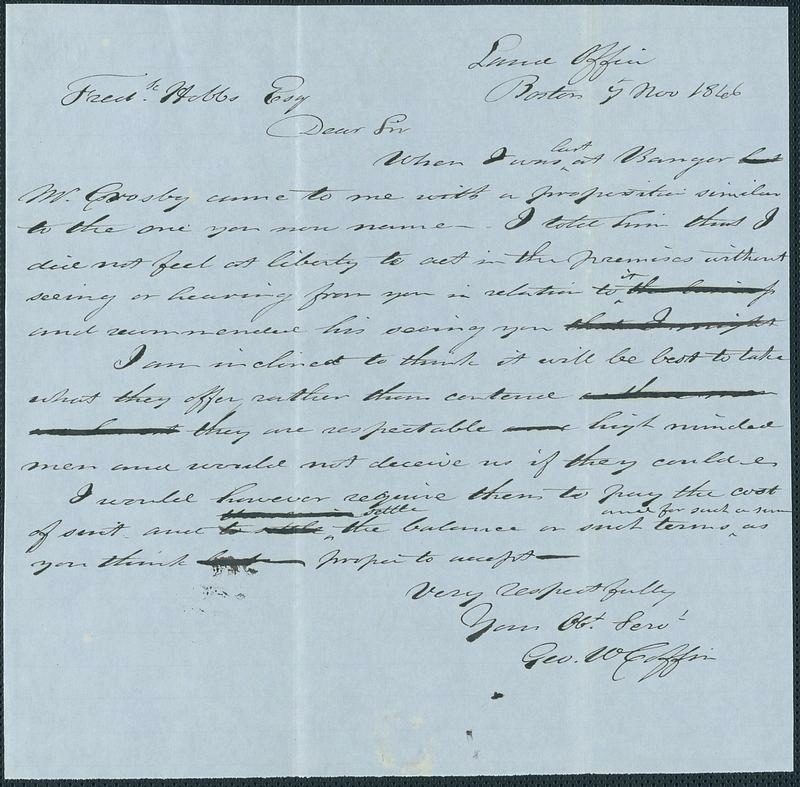 Land Office
Boston 7 Nov 1846
Fredk Hobbs Esq
Dear Sir
last
When I was at Bangor
Mr. Crosby came to me with a proposition similar
to the one you now name - I told him that I
did not feel at liberty to act in the premises without
it
seeing or hearing from you in relation to
and recommended his seeing you that I might
I am inclined to think it will be best to take
what they offer rather than contend
they are respectable high minded
men and would not deceive us if they could
I would however require them to pay the cost
settle and for such a sum
of suit and to the balance on such terms as
you think proper to accept
Very respectfully
Your Obt. Servt
Geo. W Coffin